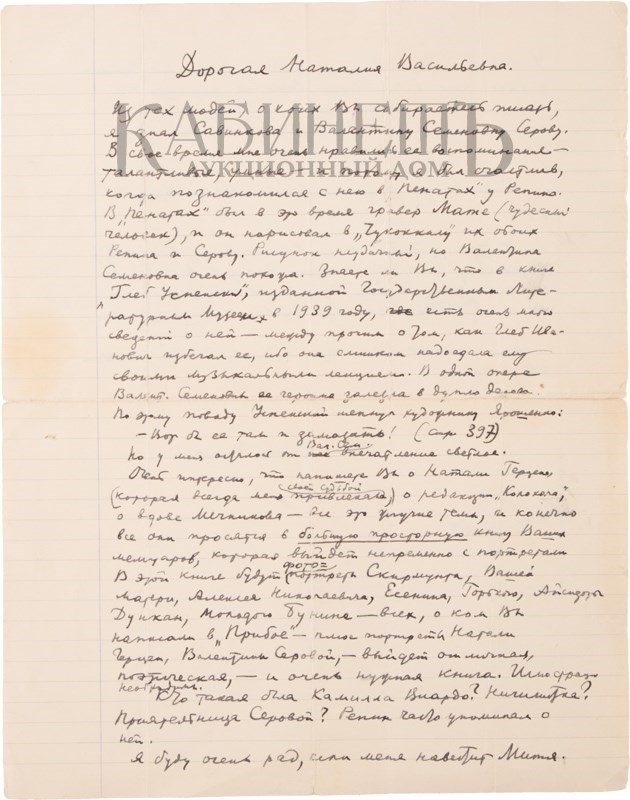 Дорогая Наталия Васильевна.
Из тех людей, о коих Вы собираетесь писать,
я знал Савинкова и Валентину Семеновну Серову.
КАБИНЕТЪ
АУКЦИОННЫЙ ДОМ
В свое время мне очень нравились ее воспоминания —
талантливые, и потому я был счастлив,
когда познакомился с нею в „Пенатах" у Репина.
В „Пенатах" был в это время гравер Матэ (чудесный
человек), и он нарисовал в „Чукоккалу" их обоих
Репина и Серову. Рисунок неудачный, но Валентина
Семеновна очень похожа. Знаете ли Вы, что в книге
„Глеб Успенский", изданной Государственным Лите-
ратурным Музеем в 1939 году, есть очень много
сведений о ней — между прочим о том, как Глеб Ива-
нович избегал ее, ибо она слишком надоедала ему
своими музыкальными лекциями. В одной опере
Валент. Семеновны ее героиня залезла в дупло дерева.
По этому поводу Успенский шепнул художнику Ярошенко:
— Вот бы ее там и замазать! (стр. 397)
Но у меня осталось от Вал. Сем. впечатление светлое.
Очень интересно, что напишете Вы о Натали Герцен,
(которая всегда меня привлекала своей судьбой) о редакции „Колокола",
о вдове Мечникова — все это жгучие темы, и конечно
все они просятся в большую просторную книгу Ваших
мемуаров, которая выйдет непременно с портретами
В этой книге будут фото-портреты Скирмунта, Вашей
матери, Алексея Николаевича, Есенина, Горького, Айседоры
Дункан, молодого Бунина — всех, о ком Вы
написали в „Прибое" — плюс портреты Натали
Герцен, Валентины Серовой, — выйдет отличная,
поэтическая, — и очень нужная книга. Иллюстрации
необходимы.
Кто такая была Камилла Виардо? Нигилистка?
Приятельница Серовой? Репин часто упоминал о
ней.
Я буду очень рад, если меня навестит Митя.